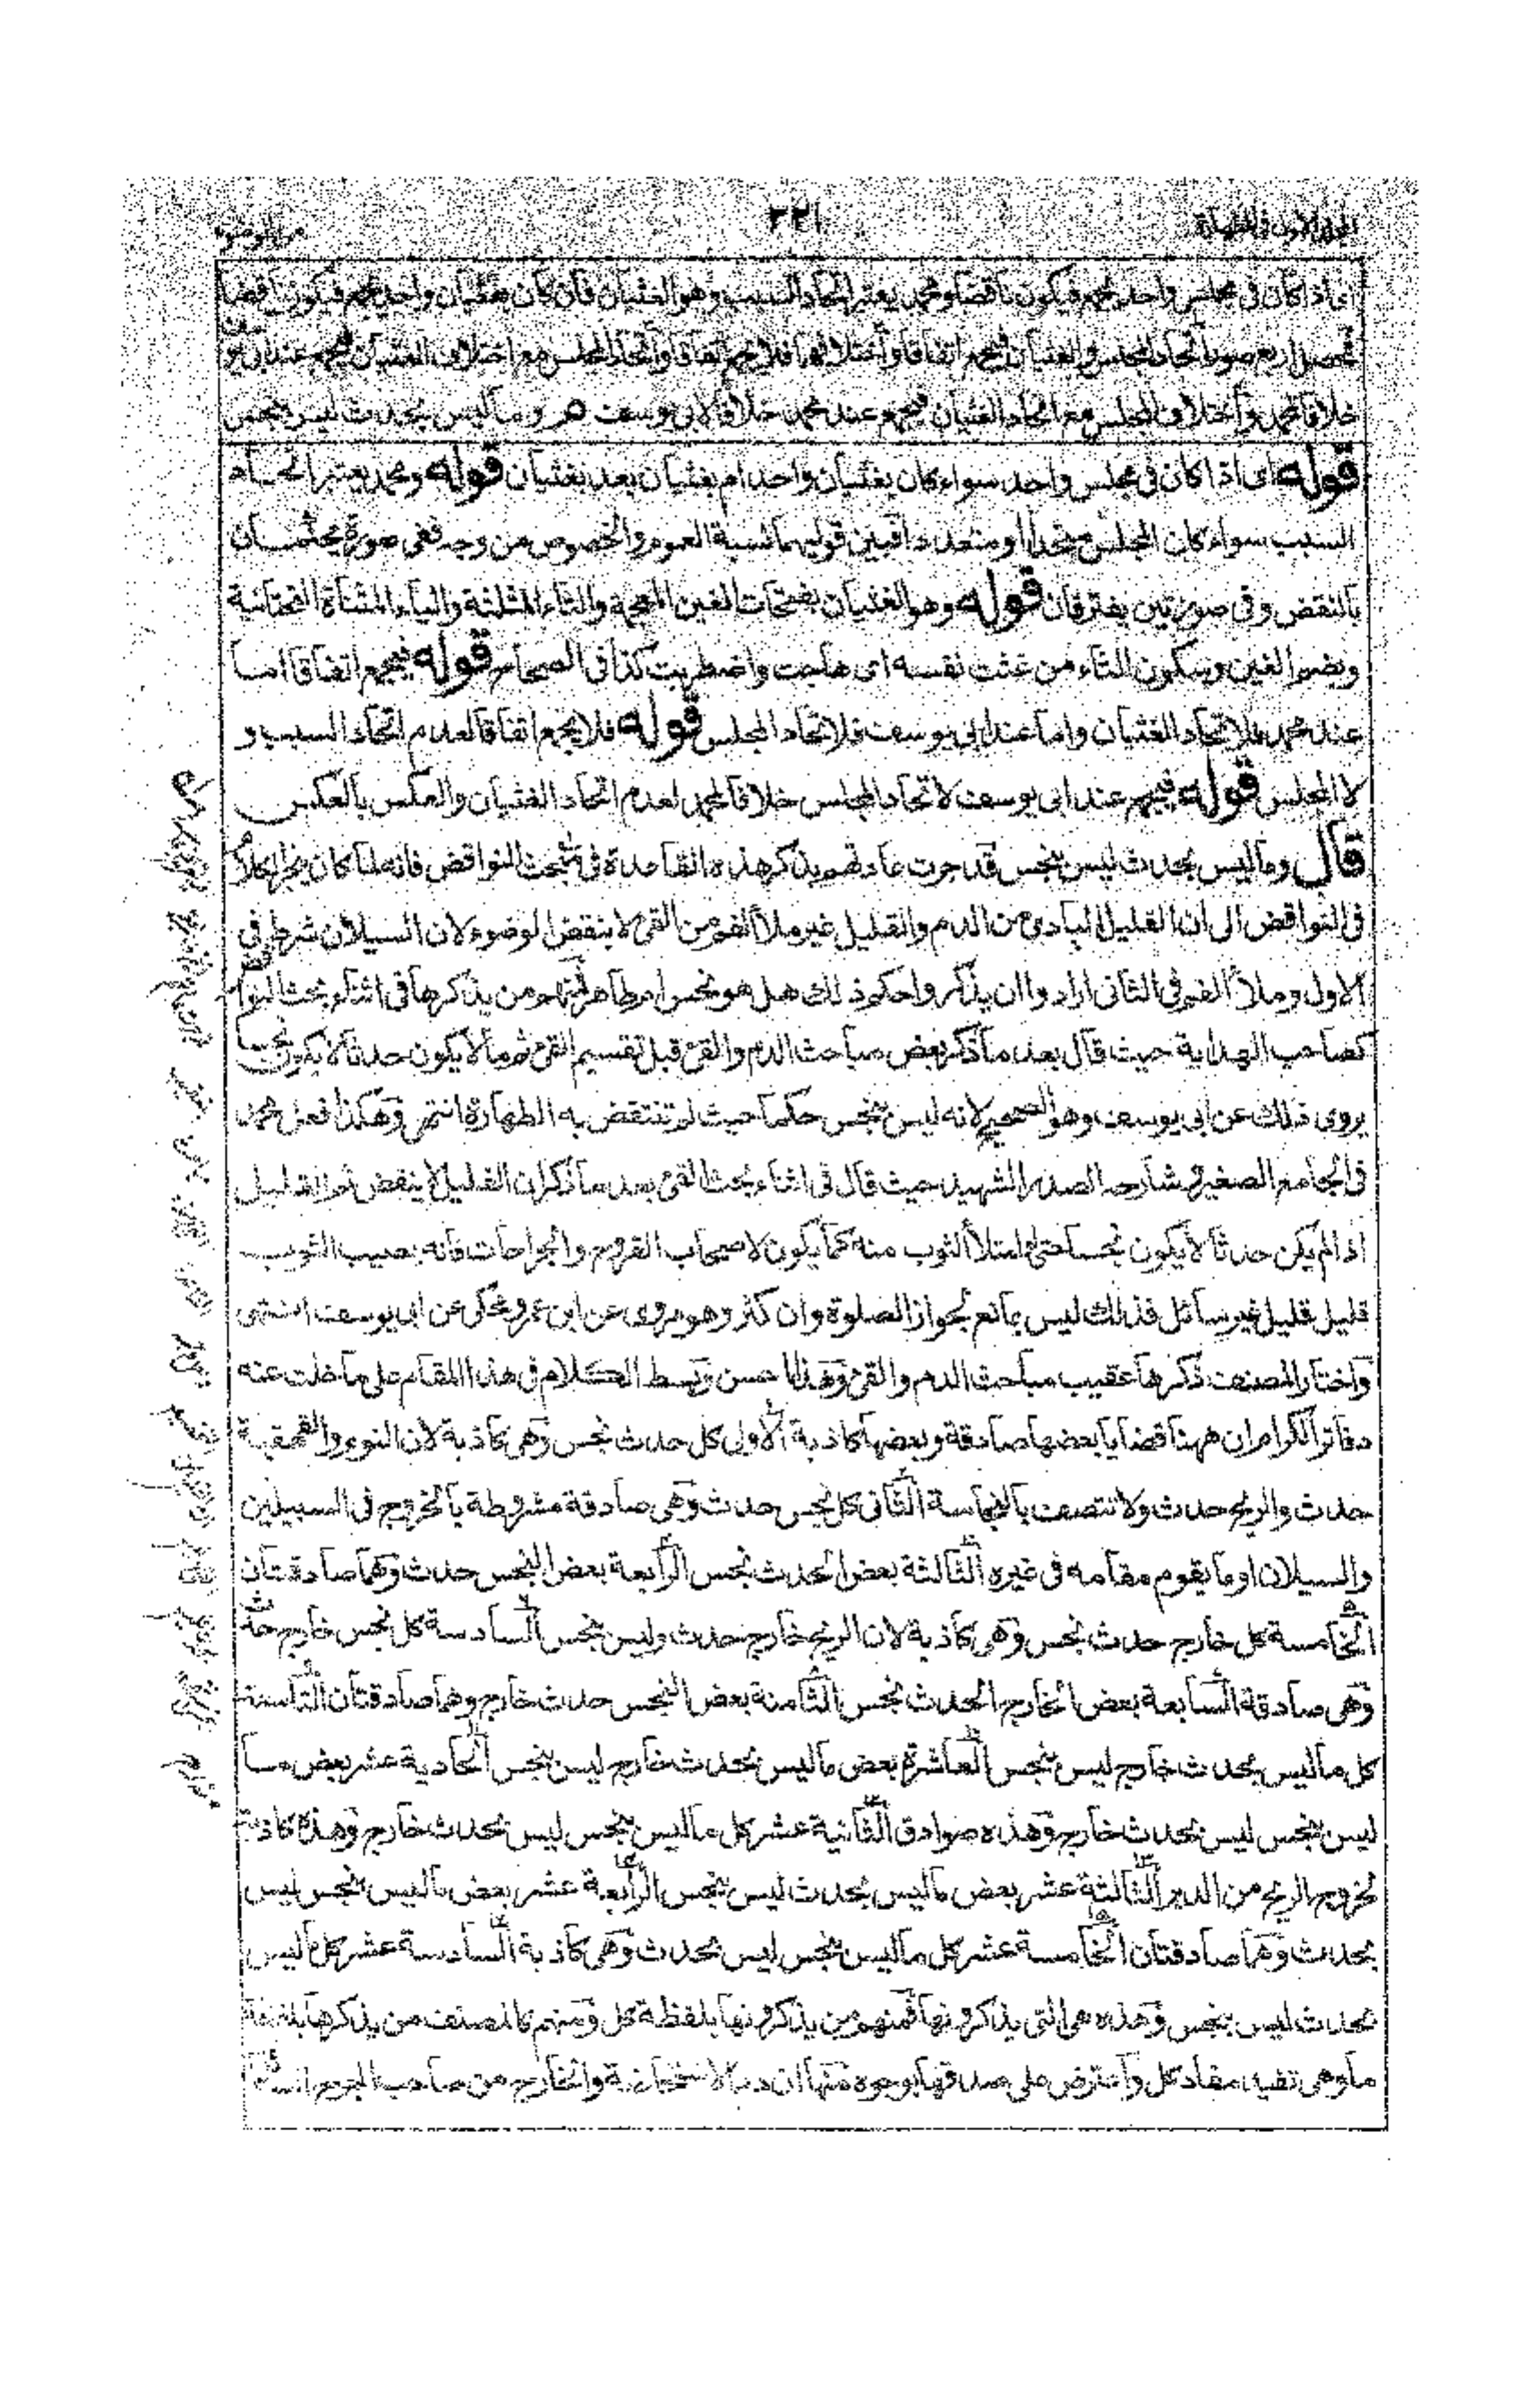 ٢٢١
اى اذا كان فى مجلس واحد يجمع فيكون ناقضا ومحمد يعتبر اتحاد السبب وهو الغثيان فان كان بغثيان واحد يجمع فيكون ناقضا
فحصل اربع صور اتحاد المجلس والغثيان فيجمع اتفاقا واختلافهما فلا يجمع اتفاقا واتحاد المجلس مع اختلاف الغثيان فيجمع عند ابى يوسف
خلافا لمحمد واختلاف المجلس مع اتحاد الغثيان فيجمع عند محمد خلافا لابى يوسف هر وما ليس بحدث ليس بنجس
قوله اى اذا كان فى مجلس واحد سواء كان بغثيان واحد ام بغثيان بعد بغثيان قوله ومحمد يعتبر اتحاد
السبب سواء كان المجلس متحدا او متعددا فبين قوليهما نسبة العموم والخصوص من وجه ففى صورة يجتمعان
بالنقض وفى صورتين يفترقان قوله وهو الغثيان بفتحات الغين المعجمة والثاء المثلثة والياء المثناة التحتانية
وبضم الغين وسكون الثاء من غثت نفسه اى هاجت واضطربت كذا فى الصحاح قوله فيجمع اتفاقا اما
عند محمد فلاتحاد الغثيان واما عند ابى يوسف فلاتحاد المجلس قوله فلا يجمع اتفاقا لعدم اتحاد السبب و
لا المجلس قوله فيجمع عند ابى يوسف لاتحاد المجلس خلافا لمحمد لعدم اتحاد الغثيان والعكس بالعكس
قال وما ليس بحدث ليس بنجس قد جرت عادتهم بذكر هذه القاعدة فى مبحث النواقض فانه لما كان ينجر كلامهم
فى النواقض الى ان القليل البادى من الدم والقليل غير ملأ الفم من القئ لا ينقض الوضوء لان السيلان شرط فى
الاول وملأ الفم فى الثانى ارادوا ان يذكروا حكم ذلك هل هو نجس ام طاهر فمنهم من يذكرها فى اثناء بحث النواقض
كصاحب الهداية حيث قال بعد ما ذكر بعض مباحث الدم والقئ قبل تقسيم القئ ثم ما لا يكون حدثا لا يكون نجسا
يروى ذلك عن ابى يوسف وهو الصحيح لانه ليس بنجس حكما حيث لم تنتقض به الطهارة انتهى وهكذا فعل محمد
فى الجامع الصغير وشارحه الصدر الشهيد حيث قال فى اثناء بحث القئ بعد ما ذكر ان القليل لا ينقض ثم القليل
اذا لم يكن حدثا لا يكون نجسا حتى لو امتلأ الثوب منه كما يكون لاصحاب القروح والجراحات فانه يصيب الثوب
قليل قليل غير سائل فذلك ليس بمانع لجواز الصلوة وان كثر وهو مروى عن ابن عمر ومحكى عن ابى يوسف انتهى
واختار المصنف ذكرها عقيب مباحث الدم والقئ وهذا احسن وبسط الكلام فى هذا المقام على ما خلت عنه
دفاتر الكرام ان ههنا قضايا بعضها صادقة وبعضها كاذبة الاولى كل حدث نجس وهى كاذبة لان النوم والقهقهة
حدث والريح حدث ولا تتصف بالنجاسة الثانى كل نجس حدث وهى صادقة مشروطة بالخروج فى السبيلين
والسيلان او ما يقوم مقامه فى غيره الثالثة بعض الحدث نجس الرابعة بعض النجس حدث وهما صادقتان
الخامسة كل خارج حدث نجس وهى كاذبة لان الريح خارج حدث وليس بنجس السادسة كل نجس خارج حدث
وهى صادقة السابعة بعض الخارج الحدث نجس الثامنة بعض النجس حدث خارج وهما صادقتان التاسعة
كل ما ليس بحدث خارج ليس بنجس العاشرة بعض ما ليس بحدث خارج ليس بنجس الحادية عشر بعض ما
ليس بنجس ليس بحدث خارج وهذه صوادق الثانية عشر كل ما ليس بنجس ليس بحدث خارج وهذه كاذبة
لخروج الريح من الدبر الثالثة عشر بعض ما ليس بحدث ليس بنجس الرابعة عشر بعض ما ليس بنجس ليس
بحدث وهما صادقتان الخامسة عشر كل ما ليس بنجس ليس بحدث وهى كاذبة السادسة عشر كل ما ليس
بحدث ليس بنجس وهذه هى التى يذكرونها فمنهم من يذكرونها بلفظة كل ومنهم كالمصنف من يذكرها بلفظة
ما وهى تفيد مفاد كل واعترض على صدقها بوجوه منها ان دم الاستحاضة والخارج من صاحب الجرح